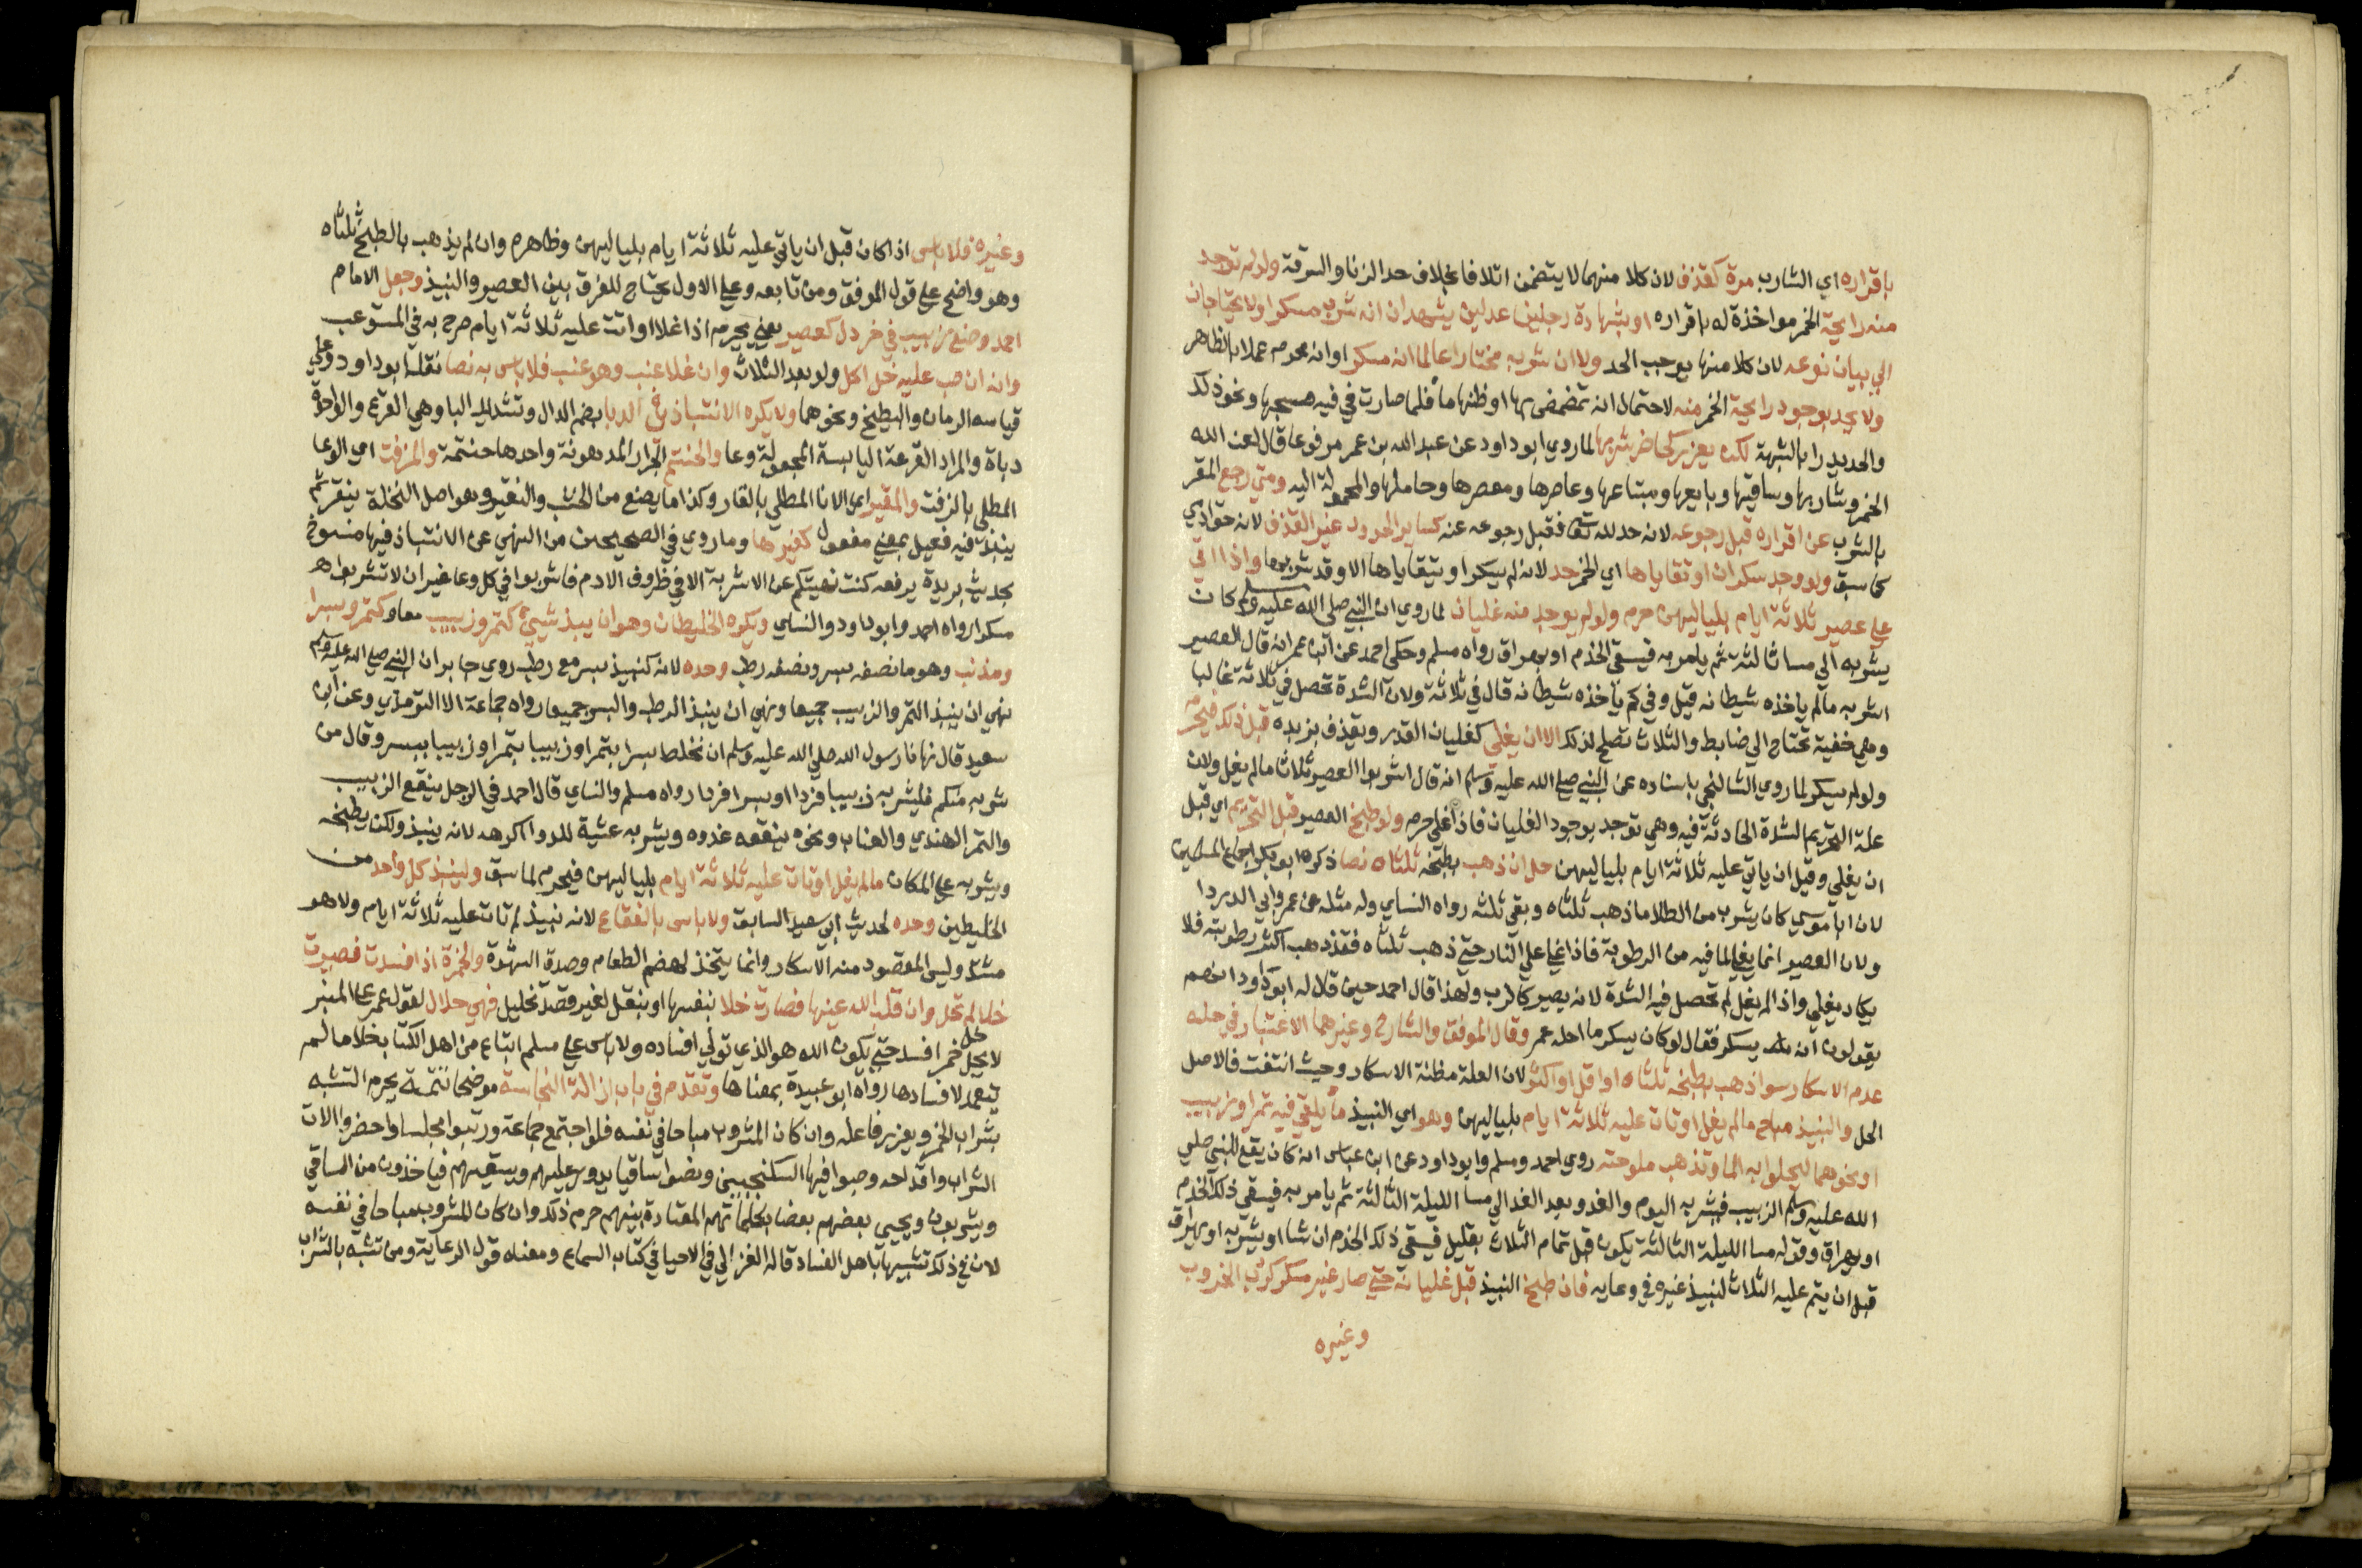 باقراره اي الشارب مرة كقذف لان كلا منهما لا يتضمن اتلافا بخلاف حد الزنا والسرقة ولو لم توجد
منه رايحة الخمر مواخذة له باقراره او بشهادة رجلين عدلين يشهدان انه شرب مسكرا ولا يحتاجان
الي بيان نوعه لان كلا منها يوجب الحد ولا ان شربه مختارا عالما انه مسكر او انه محرم عملا بالظاهر
ولا يحد بوجود رايحة الخمر منه لاحتمال انه تمضمض بها او ظنها ما فلما صارت في فيه مجها ونحو ذلك
والحد يدرا بالشبهة لكن يعزر كحاضر شربها لما روي ابو داود عن عبد الله بن عمر مرفوعا قال لعن الله
الخمر وشاربها وساقيها وبايعها ومبتاعها وعاصرها ومعصرها وحاملها والمحمولة اليه ومتي رجع المقر
بالشرب عن اقراره قبل رجوعه لانه حد لله تعالى فقبل رجوعه عنه كساير الحدود غير القذف لانه حق ادمي
كما سبق ولو وجد سكران او تقاياها اي الخمر حد لانه لم يسكر او يتقاياها الا وقد شربها واذا اتي
علي عصير ثلاثة ايام بلياليهن حرم ولو لم يوجد منه غليان لما روي ان النبي صلي الله عليه وسلم كان
يشربه الي مسا ثالثة ثم يامر به فيسقي الخدم او يهراق رواه مسلم وحكي احمد عن ابن عمر انه قال العصير
اشربه مالم ياخذه شيطانه قيل وفي كم ياخذه شيطانه قال في ثلاثة ولان الشدة تحصل في ثلاثة غالبا
وهي خفية تحتاج الي ضابط والثلاث تصلح لذلك الا ان يغلي كغليان القدر ويقذف بزبده قبل ذلك فيحرم
ولو لم يسكر لما روي الشالنجي باسناده عن النبي صلي الله عليه وسلم انه قال اشربوا العصير ثلاثا مالم يغل ولان
علة التحريم الشدة الحادثة فيه وهي توجد بوجود الغليان فاذا غلي حرم ولو طبخ العصير قبل التحريم اي قبل
ان يغلي وقبل ان ياتي عليه ثلاثة ايام بلياليهن حل ان ذهب بطبخه ثلثاه نصا ذكره ابو بكر اجماع المسلمين
لان ابا موسي كان يشرب من الطلا ما ذهب ثلثاه وبقي ثلثه رواه النساي وله مثله عن عمر وابي الدردا
ولان العصير انما يغلي لما فيه من الرطوبة فاذا غلي علي النار حتي ذهب ثلثاه فقد ذهب اكثر رطوبته فلا
يكاد يغلي واذا لم يغل لم تحصل فيه الشدة لانه يصير كالرب ولهذا قال احمد حين قال له ابو داود انهم
يقولون انه يسكر فقال لو كان يسكر ما احله عمر وقال الموفق والشارح وغيرهما الاعتبار في حله
عدم الاسكار سوا ذهب بطبخه ثلثاه او اقل او اكثر لان العلة مظنة الاسكار وحيث انتفت فالاصل
الحل والنبيذ مباح مالم يغل او تات عليه ثلاثة ايام بلياليهن وهو اي النبيذ ما يلقي فيه تمر او زبيب
او نحوهما ليحلوا به الما وتذهب ملوحته روي احمد ومسلم وابو داود عن ابن عباس انه كان يقع للنبي صلي
الله عليه وسلم الزبيب فيشربه اليوم والغد وبعد الغد الي مسا الليلة الثالثة ثم يامر به فيسقي ذلك الخدم
او يهراق وقوله مسا الليلة الثالثة يكون قبل تمام الثلاث بقليل فيسقي ذلك الخدم ان شا او يشربه او يهراق
قبل ان يتم عليه الثلاث لنبيذ غيره في وعايه فان طبخ النبيذ قبل غليانه حتي صار غير مسكر كرب الخروب
وغيره
وغيره فلا باس اذا كان قبل ان ياتي عليه ثلاثة ايام بلياليهن وظاهره وان لم يذهب بالطبخ ثلثاه
وهو واضح علي قول الموفق ومن تابعه وعلي الاول يحتاج للفرق بين العصير والنبيذ وجعل الامام
احمد وضع زبيب في خردل كعصير يعني يحرم اذا غلا او اتت عليه ثلاثة ايام صرح به في المستوعب
وانه ان صب عليه خل اكل ولو بعد الثلاث وان غلا عنب وهو عنب فلا باس به نصا نقله ابو داود وعلي
قياسه الرمان والبطيخ ونحوهما ولا يكره الانتباذ في الدبا بضم الدال وتشديد البا وهي القرع والواحدة
دباة والمراد القرعة اليابسة المجعولة وعا والحنتم الجرار المدهونة واحدها حنتمة والمزفت اي الوعا
المطلي بالزفت والمقير اي الانا المطلي بالقار وكذا ما يصنع من الخشب والنقير وهو اصل النخلة ينقر ثم
ينبذ فيه فعيل بمعني مفعول كغيرها وما روي في الصحيحين من النهي عن الانتباذ فيها منسوخ
بحديث بريدة يرفعه كنت نهيتكم عن الاشربة الا في ظروف الادم فاشربوا في كل وعا غير ان لا تشربوا
مسكرا رواه احمد وابو داود والنساي ويكره الخليطان وهو ان ينبذ شيئين كتمر وزبيب معا او كتمر وبسر
ومذنب وهو ما نصفه بسر ونصفه رطب وحده لانه كنبيذ بسر مع رطب روي جابر ان النبي صلي الله عليه وسلم
نهي ان ينبذ التمر والزبيب جميعا ونهي ان ينبذ الرطب والبسر جميعا رواه جماعة الا الترمذي وعن ابي
سعيد قال نهانا رسول الله صلي الله عليه وسلم ان نخلط بسرا بتمر او زبيبا بتمر او زبيبا ببسر وقال من
شربه منكم فليشربه زبيبا فردا او بسرا فردا رواه مسلم والنساي قال احمد في الرجل ينقع الزبيب
والتمر الهندي والعناب ونحوه ينقعه غدوه ويشربه عشية للدوا اكرهه لانه ينبذ ولكن يطبخه
ويشربه علي المكان مالم يغل او تات عليه ثلاثة ايام بلياليهن فيحرم لما سبق ولينبذ كل واحد من
الخليطين وحده لحديث ابي سعيد السابق ولا باس بالفقاع لانه نبيذ لم تات عليه ثلاثة ايام ولا هو
مشتد وليس المقصود منه الاسكار وانما يتخذ لهضم الطعام وصدق الشهوة والخمرة اذا افسدت فصيرت
خلا لم تحل وان قلب الله عينها فصارت خلا بنفسها او بنقل لغير قصد تخليل فهي حلال لقول عمر علي المنبر
لا يحل خل خمر افسد حتي يكون الله هو الذي تولي افساده ولا باس علي مسلم ابتاع من اهل الكتاب خلا مالم
يتعمد لافسادها رواه ابو عبيدة بمعناها وتقدم في باب ازالة النجاسة موضحا تتمة يحرم التشبه
بشراب الخمر ويعزر فاعله وان كان المشروب مباحا في نفسه فلو اجتمع جماعة ورتبوا مجلسا واحضروا الات
الشراب واقداحه وصبوا فيها السكنجبين ونصبوا ساقيا يدور عليهم ويسقيهم فياخذون من الساقي
ويشربون ويحيي بعضهم بعضا بكلماتهم المعتادة بينهم حرم ذلك وان كان المشروب مباحا في نفسه
لان في ذلك تشبيها باهل الفساد قاله الغزالي في الاحيا في كتاب السماع ومعناه قول الرعاية ومن تشبه بالشراب